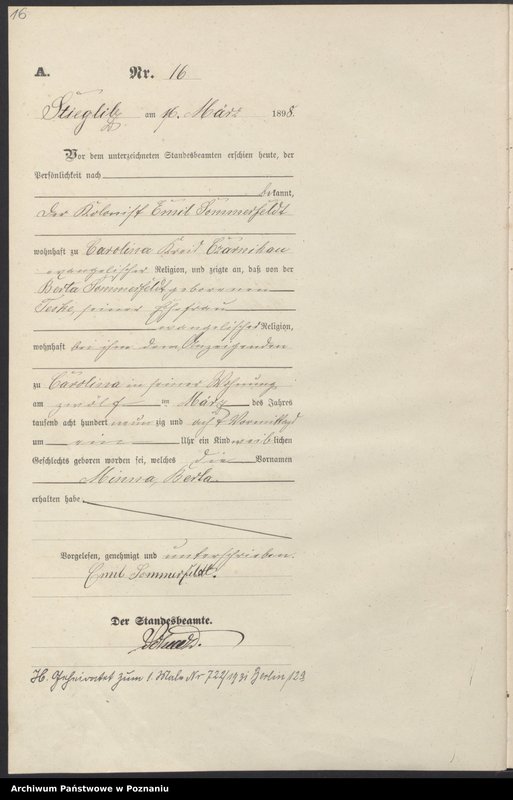 16
A. Nr. 16
Stieglitz am 16. März 1898.
Vor dem unterzeichneten Standesbeamten erschien heute, der
Persönlichkeit nach
bekannt,
der Kolonist Emil Sommerfeldt
wohnhaft zu Carolina Kreis Czarnikau
evangelischer Religion, und zeigte an, daß von der
Berta Sommerfeldt geborenen
Teske, seiner Ehefrau
evangelischer Religion,
wohnhaft bei ihm dem Anzeigenden
zu Carolina in seiner Wohnung
am zwölf ten März des Jahres
tausend acht hundert neun zig und acht Vormittags
um ein Uhr ein Kind weiblichen
Geschlechts geboren worden sei, welches die Vornamen
Minna, Berta
erhalten habe.
Vorgelesen, genehmigt und unterschrieben.
Emil Sommerfeldt.
Der Standesbeamte.
H. Geheiratet zum 1. Male Nr 722/1931 Berlin
Archiwum Państwowe w Poznaniu